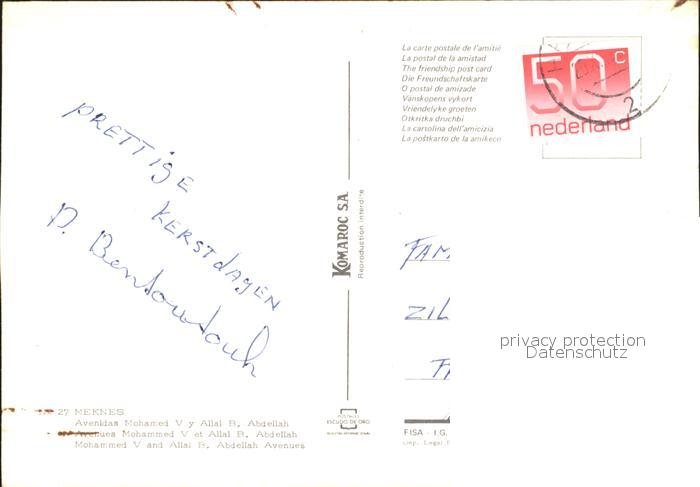 PRETTIGE
KERSTDAGEN
D. Bentoutouh
No 27 MEKNES
Avenidas Mohamed V y Allal B. Abdellah
Avenues Mohammed V et Allal B. Abdellah
Mohammed V and Allal B. Abdellah Avenues
KOMAROC S.A.
Reproduction interdite
POSTALES
ESCUDO DE ORO
La carte postale de l'amitié
La postal de la amistad
The friendship post card
Die Freundschaftskarte
O postal de amizade
Vänskopens vykort
Vriendelyke groeten
Otkritka druchbi
La cartolina dell'amicizia
La poŝtkarto de la amikeco
50 c
nederland
2
FAM
ZIL
privacy protection
Datenschutz
FISA - I.G.
Imp. Legal